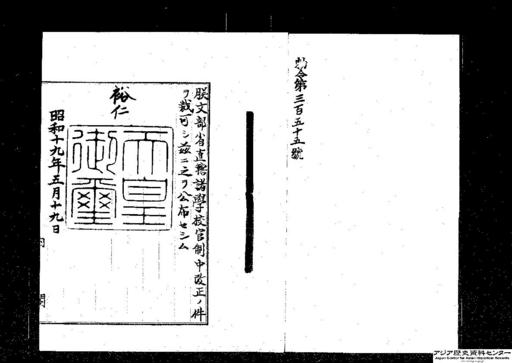 勅令第三百五十五號
朕文部省直轄諸學校官制中改正ノ件
ヲ裁可シ茲ニ之ヲ公布セシム
裕仁
天皇御璽
昭和十九年五月十九日
内閣
アジア歴史資料センター
Japan Center for Asian Historical Records